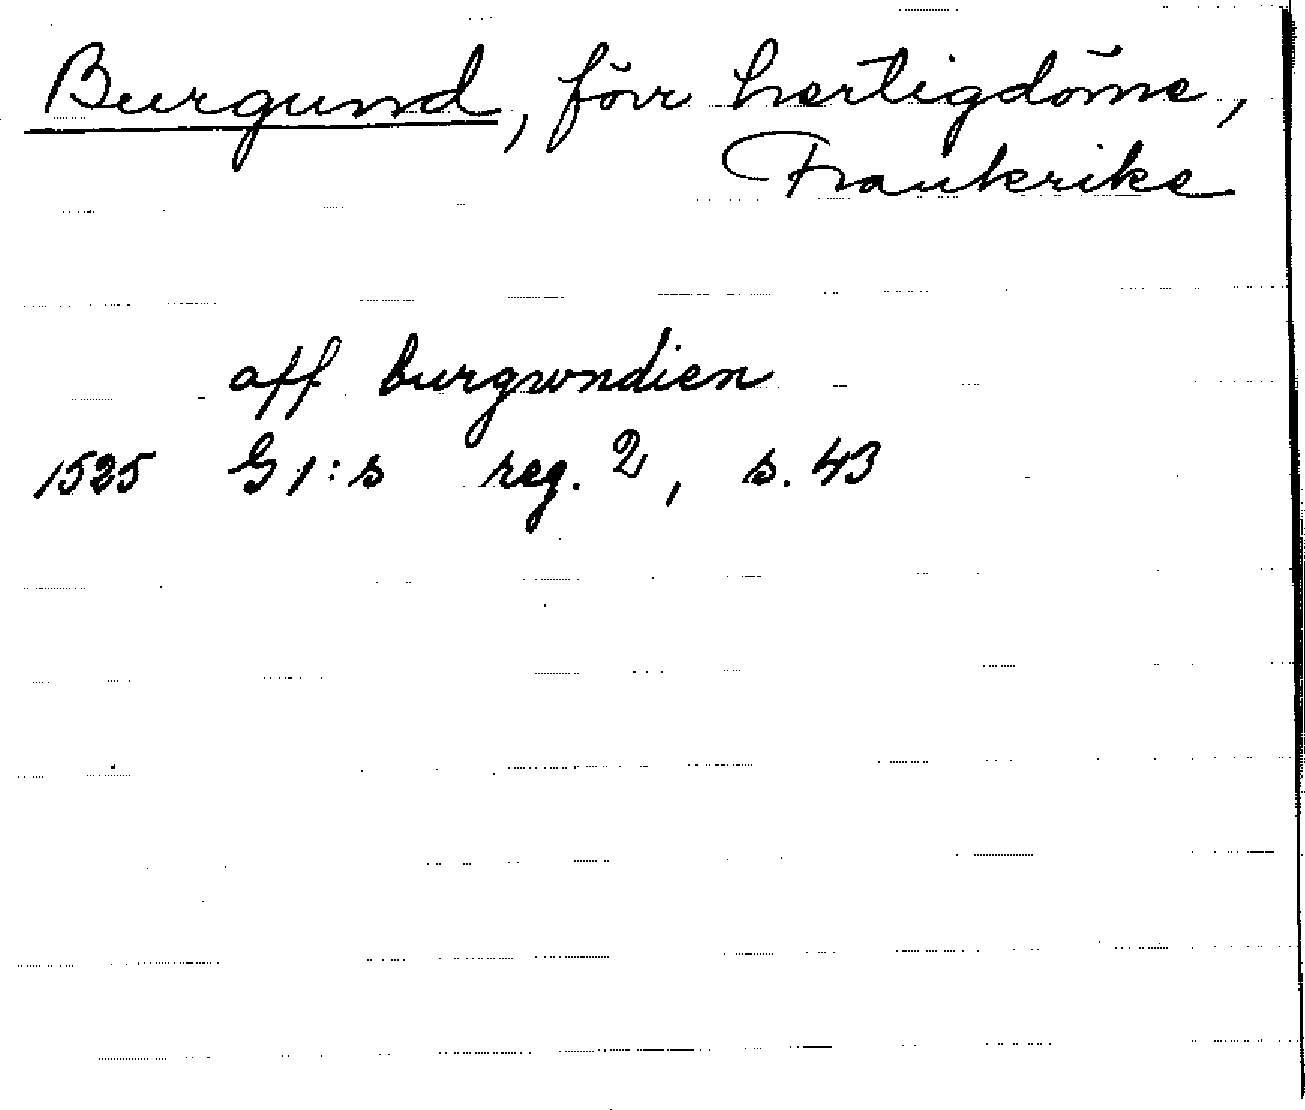 Burgund, förr hertigdöme,
Frankrike
aff burgwndien
1525 G1:s reg. 2, s. 43